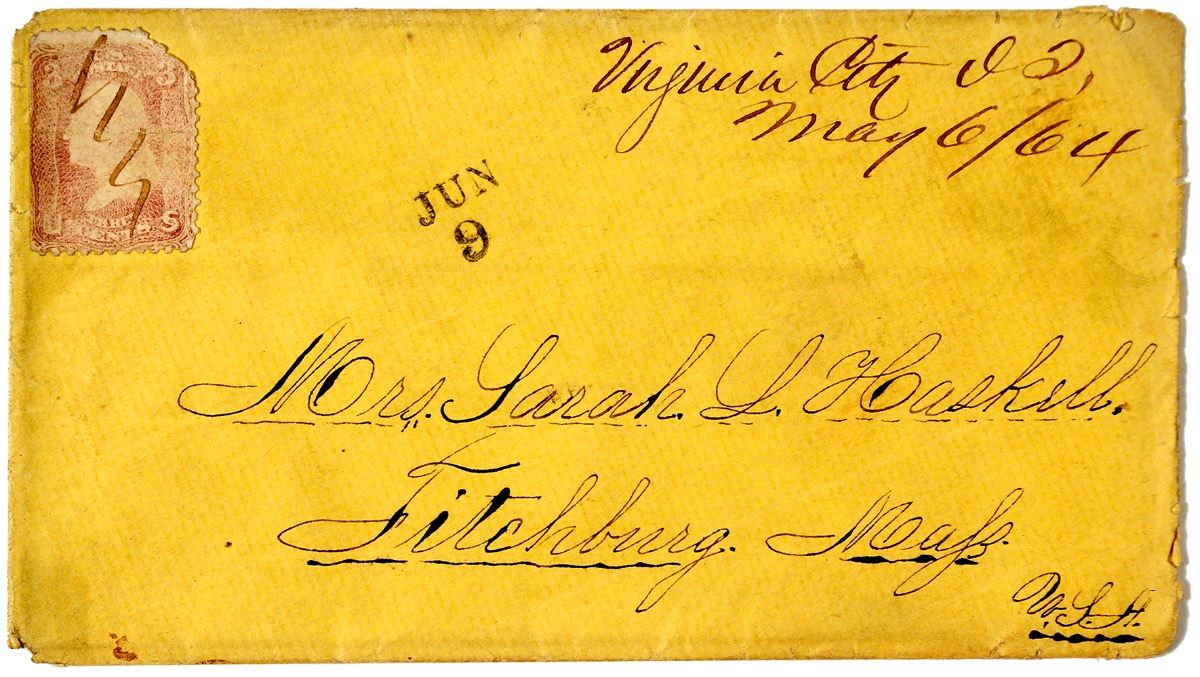 Virginia City I T,
May 6/64
JUN
9
Mrs. Sarah L. Haskell.
Fitchburg. Maſs.
W.S.H.
THREE
CENTS S